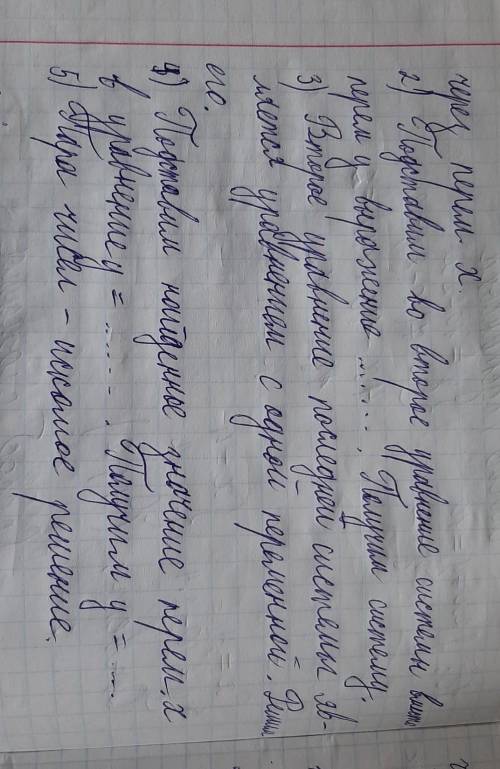 через перем. x.
2) Подставим во второе уравнение системы вместо
перем y выражение ....... Получим систему.
3) Второе уравнение последней системы яв-
ляется уравнением с одной переменной. Решим
его.
4) Подставим найденное значение перем. x
в уравнение y = ....... Получим y = .....
5) Пара чисел - искомое решение.